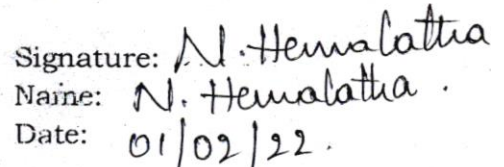 Signature: N. Hemalatha
Name: N. Hemalatha.
Date: 01/02/22.